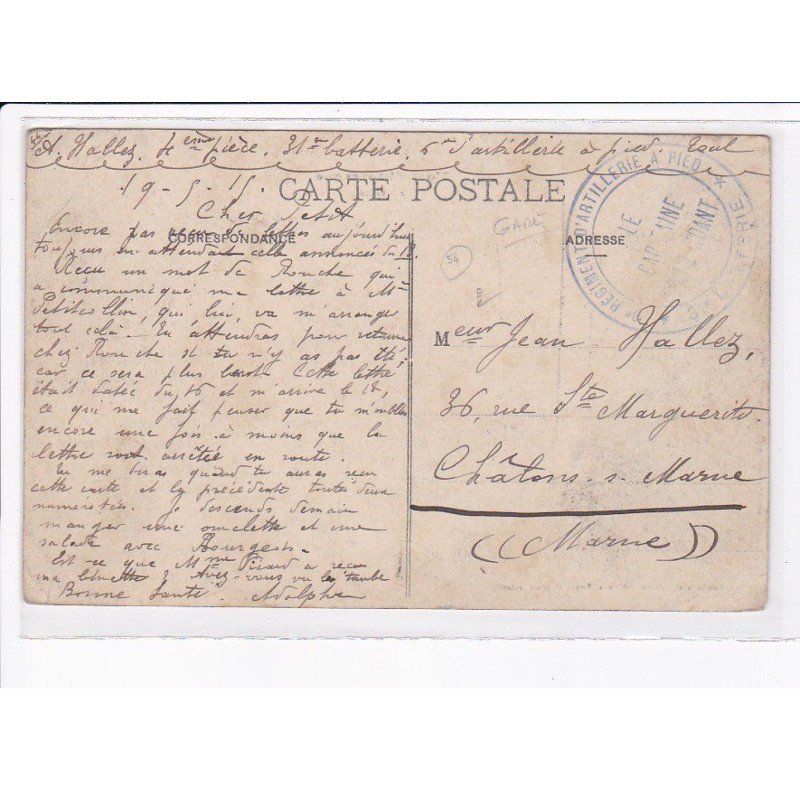 A. Hallez. 4ème pièce. 31e batterie. 6e d'artillerie à pied. Toul
19-5-15 CARTE POSTALE
Cher
CORRESPONDANCE
Encore pas reçu de lettres aujourd'hui
toujours en attendant celle annoncée du 18.
Reçu un mot de Rouche qui
a communiqué ma lettre à Mr
Petitcollin, qui, lui, va m'arranger
tout cela. En attendras pour retourner
chez Rouche si tu n'y as pas été
car ce sera plus Cette lettre
était datée du 16 et m'arrive le 18,
ce qui me fait penser que tu m'oublies
encore une fois à moins que ta
lettre soit arrêtée en route.
Tu me diras quand tu auras reçu
cette carte et la précédente toutes deux
numérotées. Je descends demain
manger une omelette et une
salade avec Bourgeois.
Est-ce que Mme Picard a reçu
ma Avez-vous vu la
Bonne Santé. Adolphe
GARE
54
ADRESSE
RÉGIMENT D'ARTILLERIE À PIED
LE
CAPITAINE
COMMANDANT
Meur Jean Hallez,
36, rue Ste Marguerite
Châlons-s-Marne
(Marne)